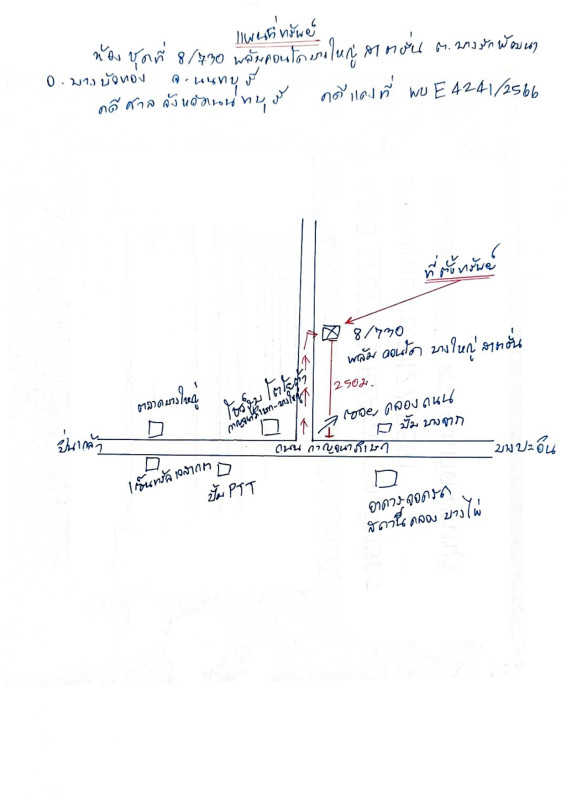 แผนที่ทรัพย์
ห้องชุดที่ 8/730 พลัมคอนโดบางใหญ่ สเตชั่น ต.บางรักพัฒนา
อ.บางบัวทอง จ.นนทบุรี
คดีศาลจังหวัดนนทบุรี คดีแดงที่ ผบE4241/2566
ที่ตั้งทรัพย์
8/730
พลัม คอนโด บางใหญ่ สเตชั่น
250ม.
ตลาดบางใหญ่
โชว์รูม โตโยต้า
กาญจนาภิเษก-บางใหญ่
ซอย คลองถนน
ปั๊ม บางจาก
ปิ่นเกล้า
ถนน กาญจนาภิเษก
บางปะอิน
เซ็นทรัลเวสเกต
ปั๊ม PTT
อาคารจอดรถ
สถานี คลอง บางไผ่